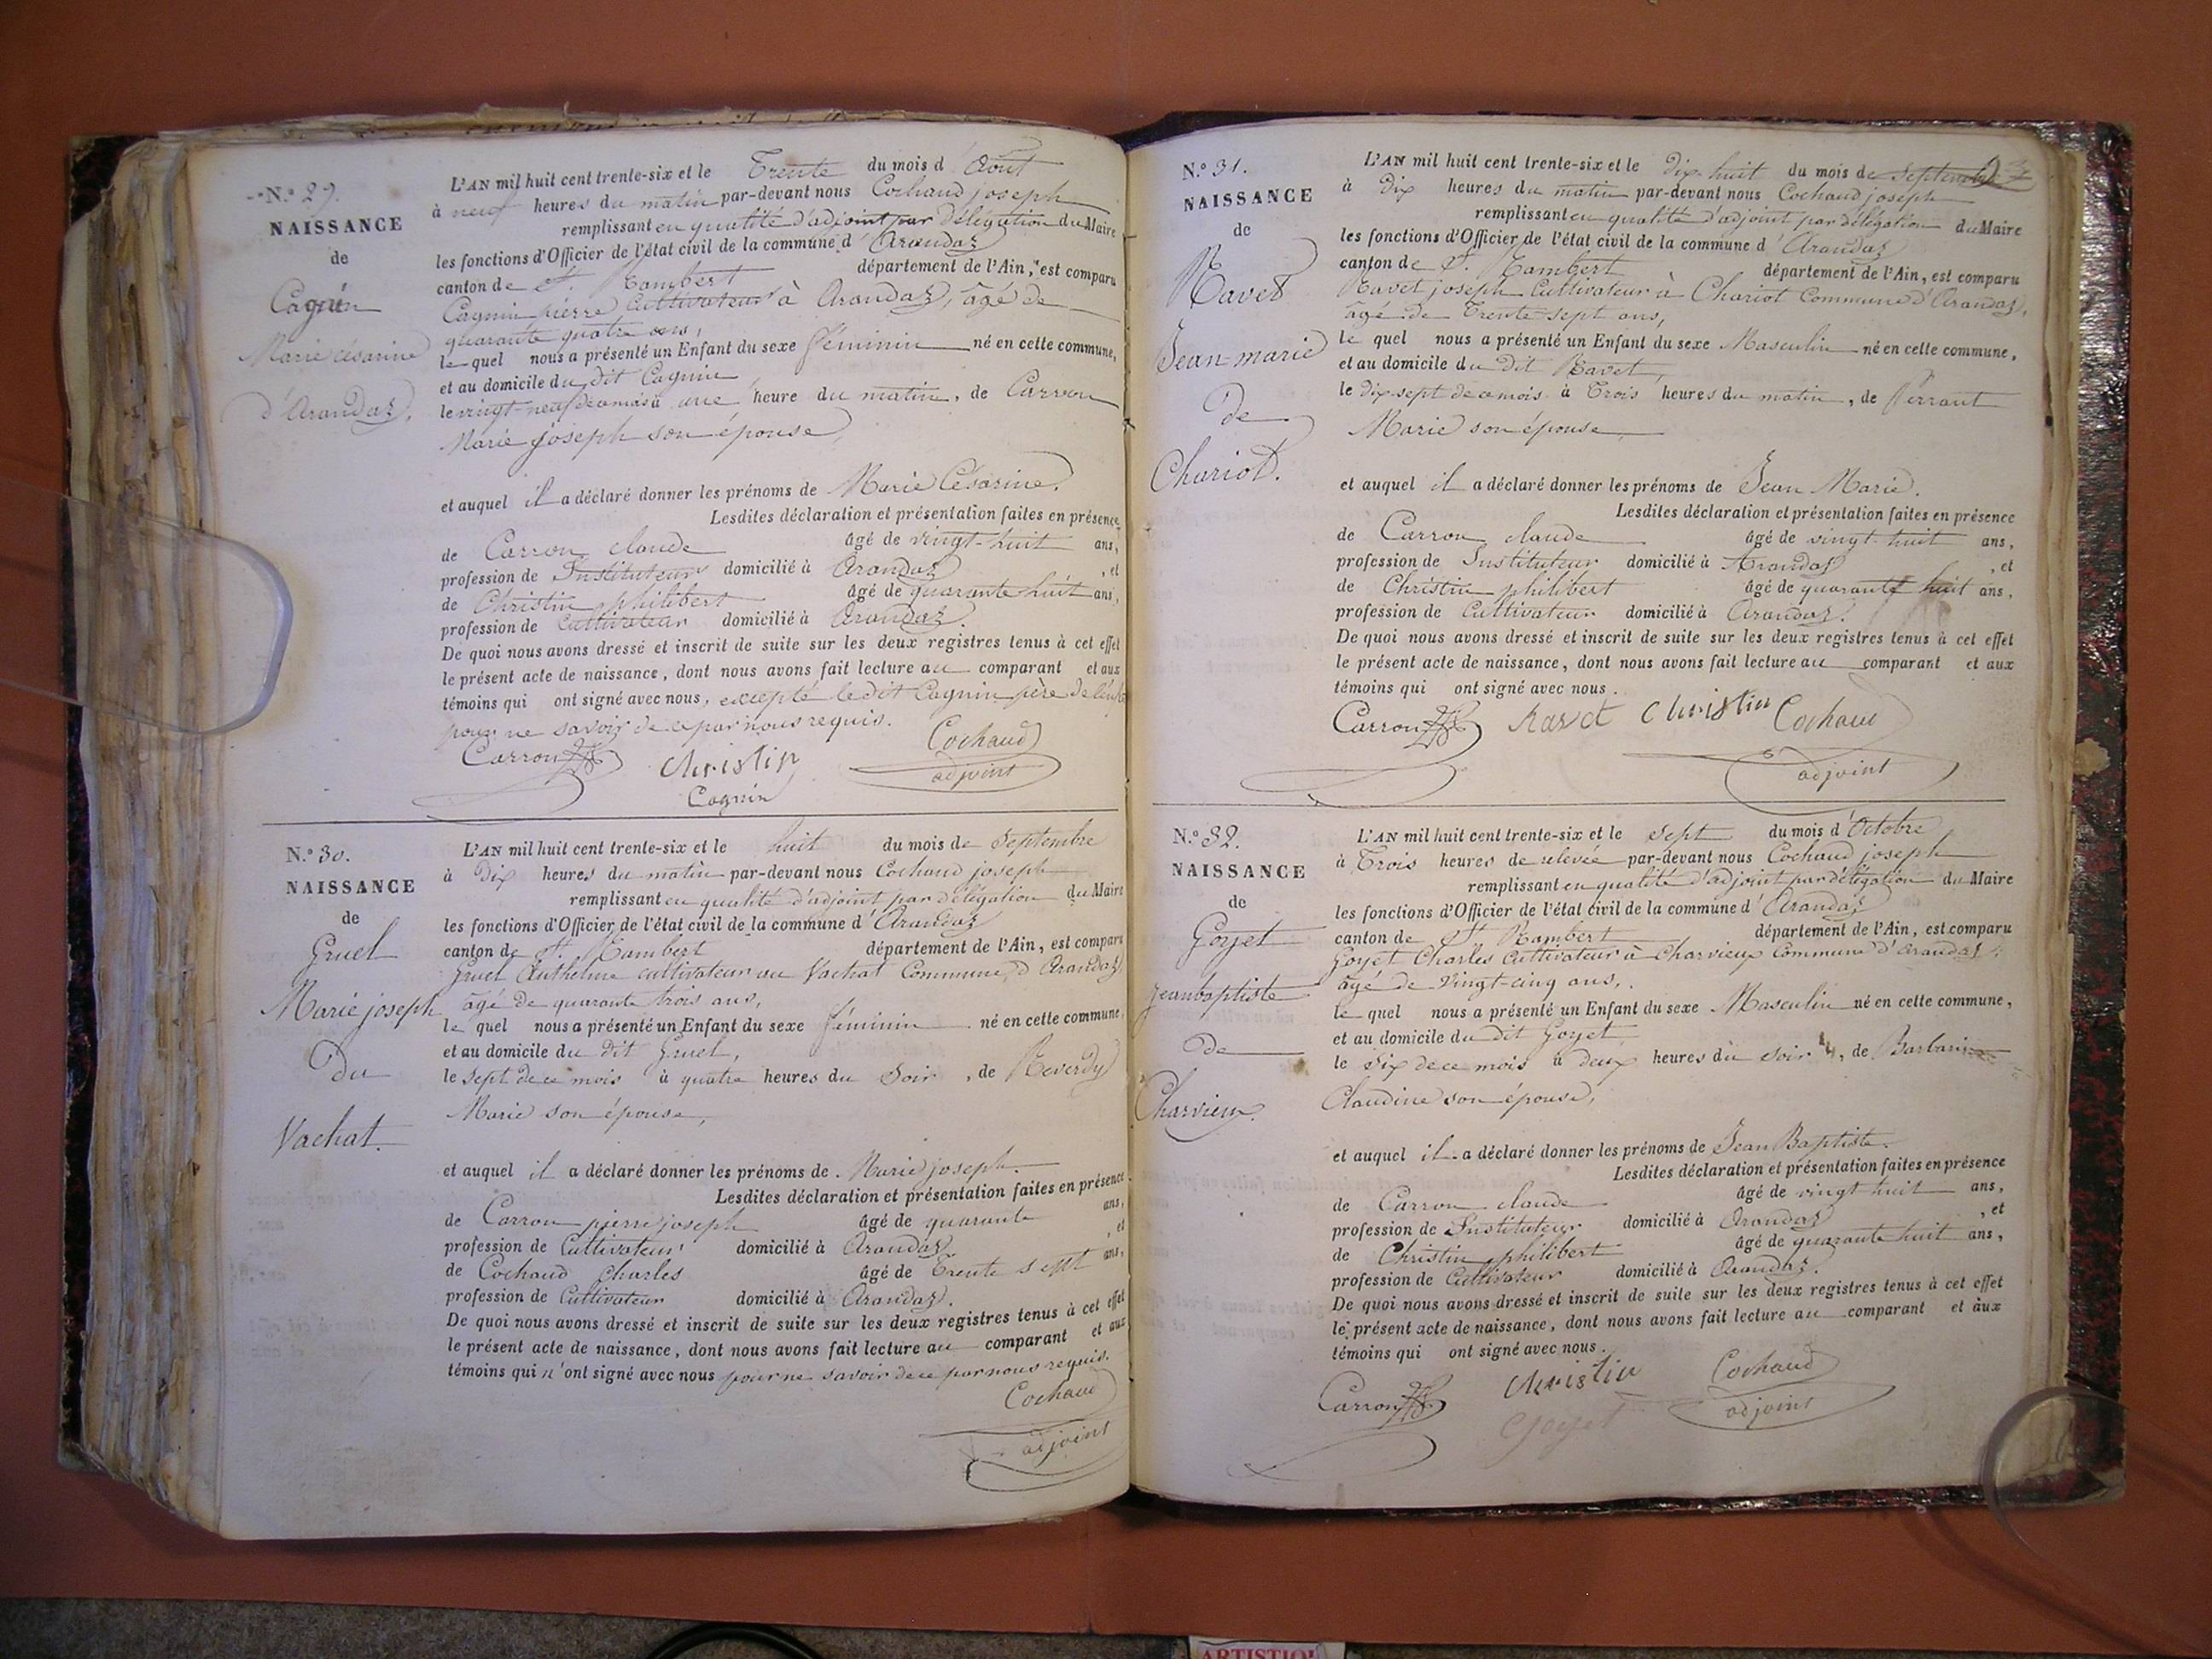 N.° 29.
NAISSANCE
de
Cagnin
Marie césarine
d'Arandaz.
L'AN mil huit cent trente-six et le Trente du mois d'Aout
à neuf heures du matin par-devant nous Cochaud joseph
remplissant en qualité d'adjoint par délégation du Maire
les fonctions d'Officier de l'état civil de la commune d'Arandaz
canton de St. Rambert département de l'Ain, est comparu
Cagnin pierre Cultivateur à Arandaz, âgé de
quarante quatre ans,
le quel nous a présenté un Enfant du sexe féminin né en cette commune,
et au domicile du dit Cagnin
le vingt-neuf de ce mois à une heure du matin, de Carron
Marie joseph son épouse,
et auquel il a déclaré donner les prénoms de Marie Césarine.
Lesdites déclaration et présentation faites en présence
de Carron claude âgé de vingt-huit ans,
profession de Instituteur domicilié à Arandaz, et
de Christin philibert âgé de quarante huit ans,
profession de Cultivateur domicilié à Arandaz.
De quoi nous avons dressé et inscrit de suite sur les deux registres tenus à cet effet
le présent acte de naissance, dont nous avons fait lecture au comparant et aux
témoins qui ont signé avec nous, excepté le dit Cagnin père de
pour ne savoir de ce par nous requis.
Carron Christin Cochaud
adjoint
Cagnin
N.° 30.
NAISSANCE
de
Gruel
Marie joseph
du
Vachat.
L'AN mil huit cent trente-six et le huit du mois de Septembre
à Dix heures du matin par-devant nous Cochaud joseph
remplissant en qualité d'adjoint par délégation du Maire
les fonctions d'Officier de l'état civil de la commune d'Arandaz
canton de St. Rambert département de l'Ain, est comparu
Gruel Anthelme cultivateur au Vachat Commune d'Arandaz
âgé de quarante trois ans,
le quel nous a présenté un Enfant du sexe féminin né en cette commune,
et au domicile du dit Gruel,
le Sept de ce mois à quatre heures du Soir, de Reverdy
Marie son épouse,
et auquel il a déclaré donner les prénoms de Marie joseph.
Lesdites déclaration et présentation faites en présence
de Carron pierre joseph âgé de quarante ans,
profession de Cultivateur domicilié à Arandaz, et
de Cochaud Charles âgé de Trente sept ans,
profession de Cultivateur domicilié à Arandaz.
De quoi nous avons dressé et inscrit de suite sur les deux registres tenus à cet effet
le présent acte de naissance, dont nous avons fait lecture au comparant et aux
témoins qui n'ont signé avec nous pour ne savoir de ce par nous requis.
Cochaud
adjoint
N.° 31.
NAISSANCE
de
Ravet
Jean-marie
De
Chariot.
L'AN mil huit cent trente-six et le Dix huit du mois de Septembre
à Dix heures du matin par-devant nous Cochaud joseph
remplissant en qualité d'adjoint par délégation du Maire
les fonctions d'Officier de l'état civil de la commune d'Arandaz
canton de St. Rambert département de l'Ain, est comparu
Ravet joseph Cultivateur à Chariot Commune d'Arandaz,
âgé de Trente sept ans,
le quel nous a présenté un Enfant du sexe Masculin né en cette commune,
et au domicile du Dit Ravet,
le Dix sept de ce mois à Trois heures du matin, de Perraut
Marie son épouse,
et auquel il a déclaré donner les prénoms de Jean Marie.
Lesdites déclaration et présentation faites en présence
de Carron claude âgé de vingt huit ans,
profession de Instituteur domicilié à Arandaz, et
de Christin philibert âgé de quarante huit ans,
profession de Cultivateur domicilié à Arandaz.
De quoi nous avons dressé et inscrit de suite sur les deux registres tenus à cet effet
le présent acte de naissance, dont nous avons fait lecture au comparant et aux
témoins qui ont signé avec nous.
Carron Ravet Christin Cochaud
adjoint
N.° 32.
NAISSANCE
de
Goyet
Jean baptiste
De
Charvieux.
L'AN mil huit cent trente-six et le Sept du mois d'Octobre
à Trois heures de relevée par-devant nous Cochaud joseph
remplissant en qualité d'adjoint par délégation du Maire
les fonctions d'Officier de l'état civil de la commune d'Arandaz
canton de St Rambert département de l'Ain, est comparu
Goyet Charles Cultivateur à Charvieux Commune d'Arandaz,
âgé de Vingt-cinq ans,
le quel nous a présenté un Enfant du sexe Masculin né en cette commune,
et au domicile du dit Goyet
le Six de ce mois à deux heures du soir, de Barbarin
Claudine son épouse,
et auquel il a déclaré donner les prénoms de Jean Baptiste.
Lesdites déclaration et présentation faites en présence
de Carron claude âgé de vingt huit ans,
profession de Instituteur domicilié à Arandaz, et
de Christin philibert âgé de quarante huit ans,
profession de Cultivateur domicilié à Arandaz.
De quoi nous avons dressé et inscrit de suite sur les deux registres tenus à cet effet
le présent acte de naissance, dont nous avons fait lecture au comparant et aux
témoins qui ont signé avec nous.
Carron Christin Cochaud
Goyet adjoint